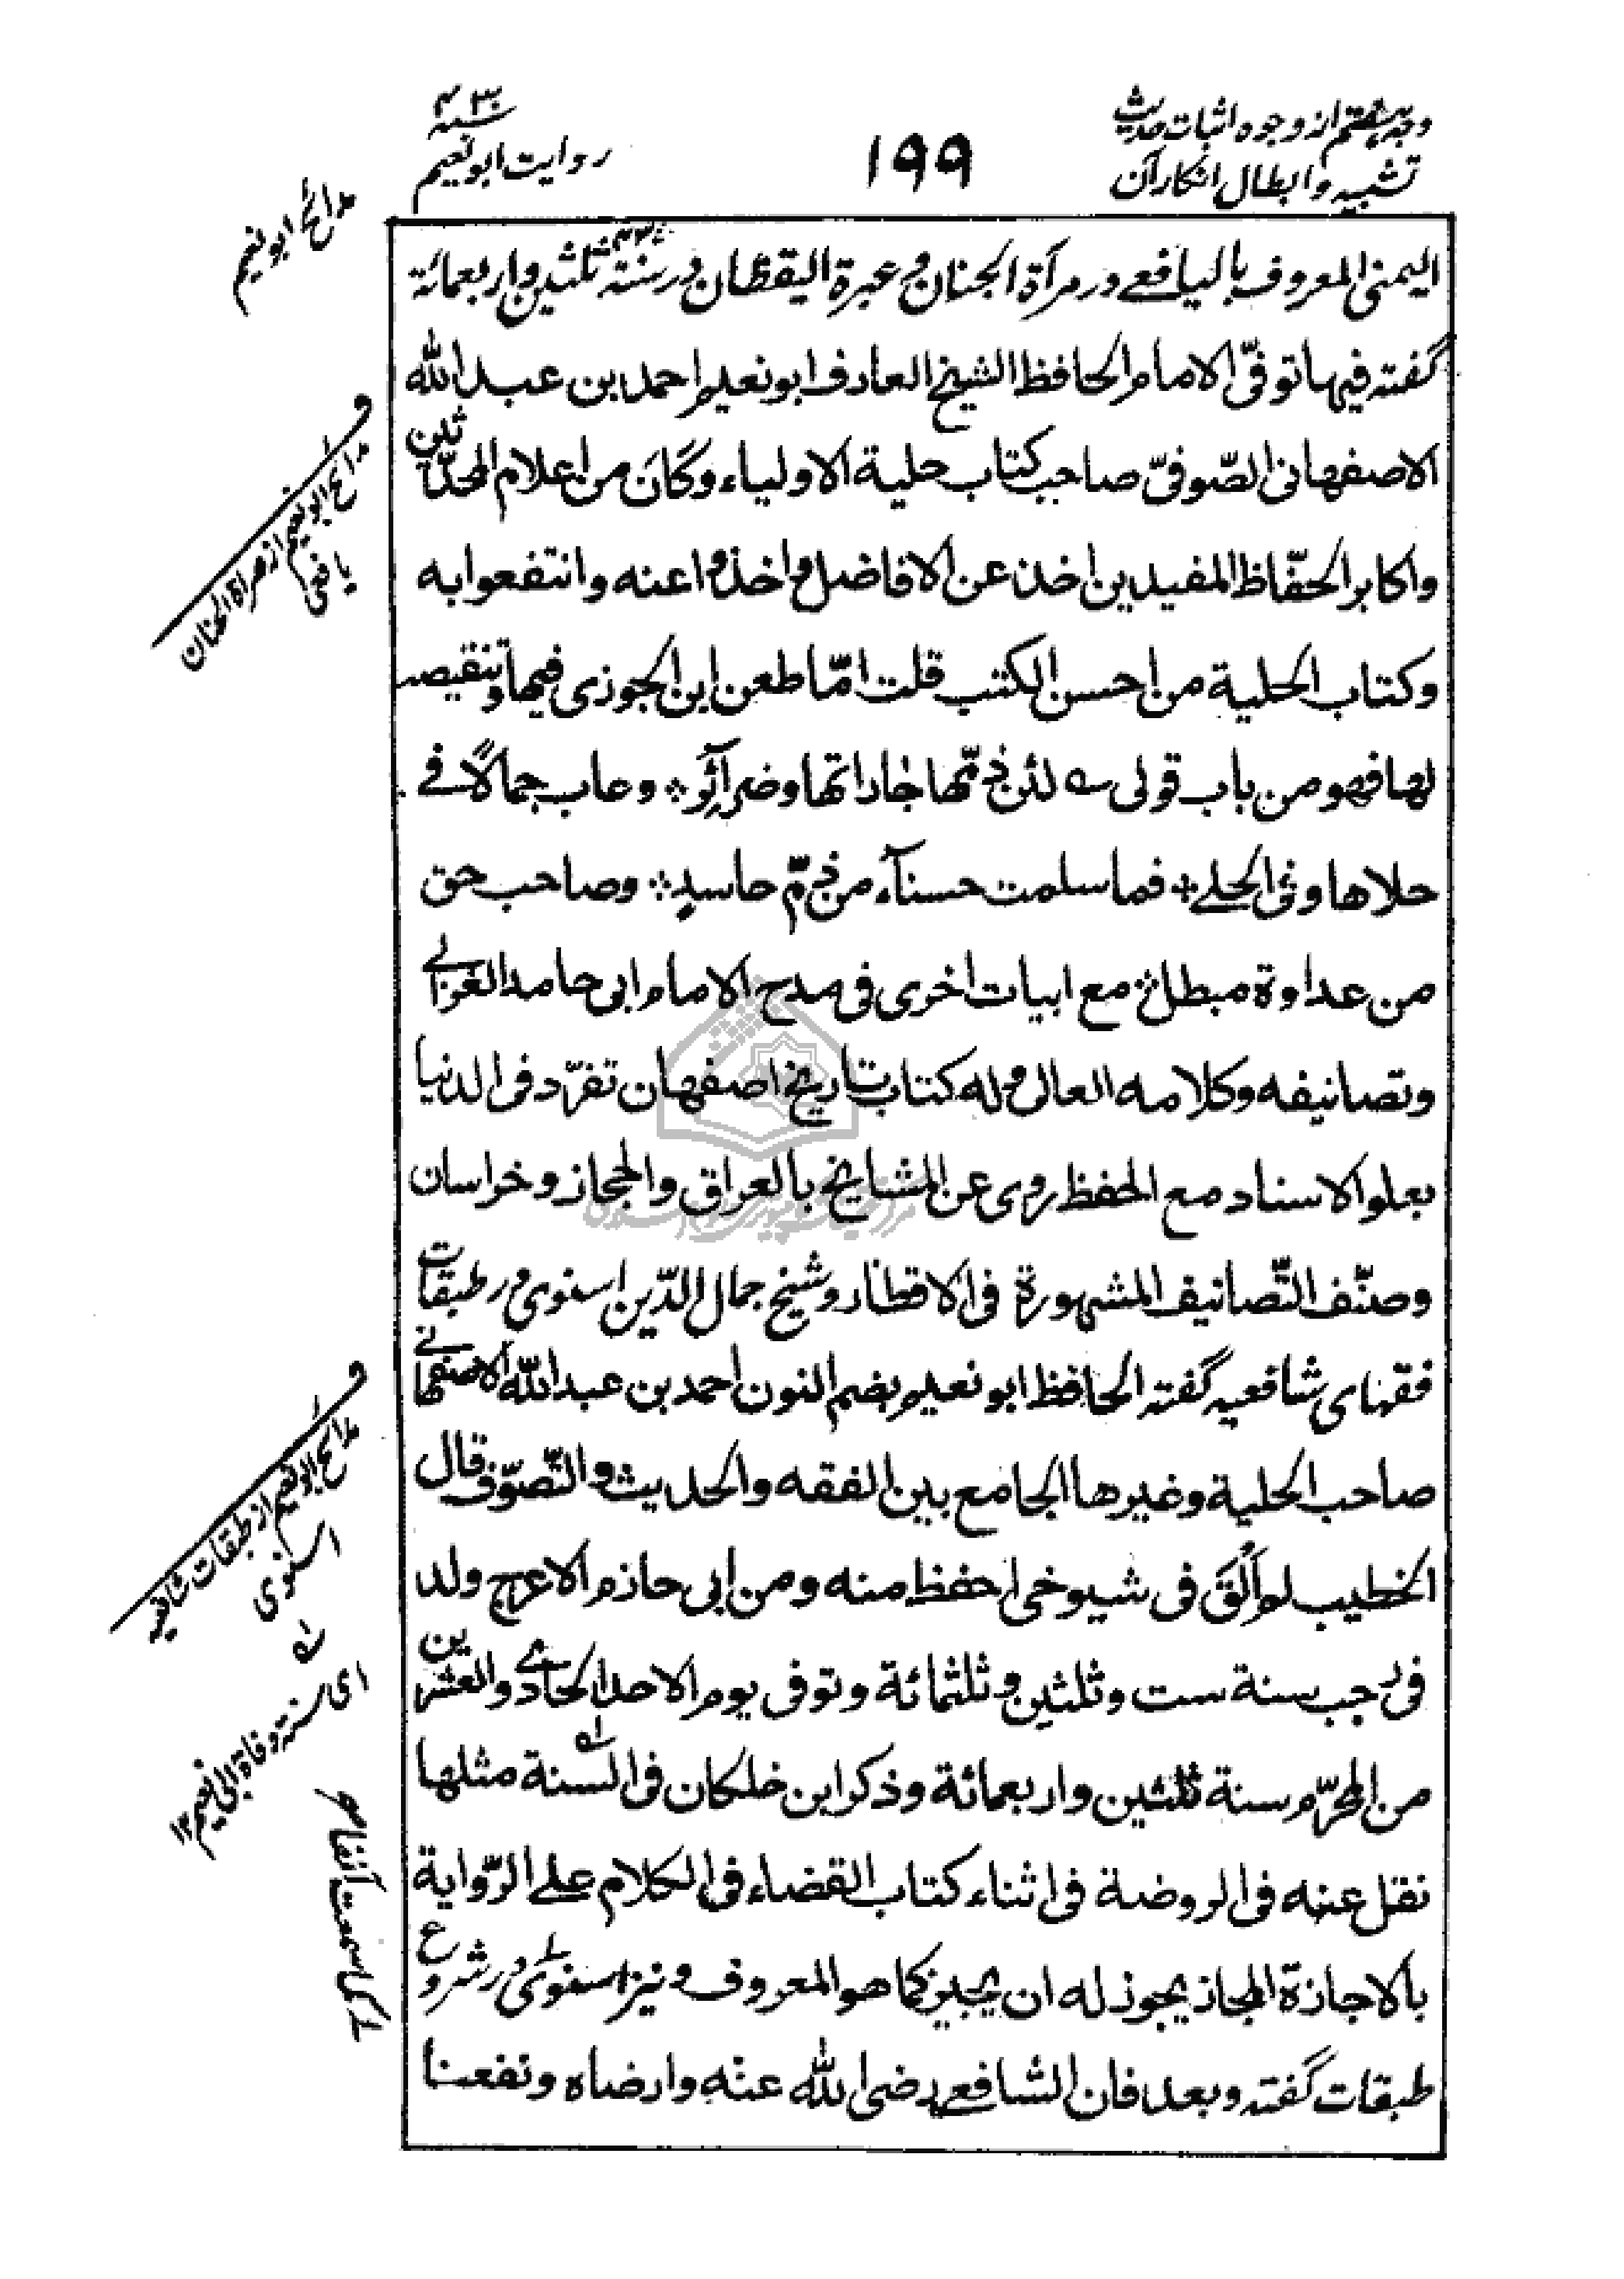 وجه هشتم از وجوه اثبات حدیث
تشبیه و ابطال انکار آن
۱۹۹
سنه ۴۳۰
روایت ابو نعیم
مدائح ابو نعیم
الیمنی المعروف بالیافعے در مرآة الجنان و عبرة الیقظان در سنة ۴۳۰ ثلثین و اربعمائة
گفته فیها توفّی الامام الحافظ الشیخ العارف ابو نعیم احمد بن عبد الله
الاصفهانی الصّوفیّ صاحب کتاب حلیة الاولیاء وکَانَ من اعلام المحدّثین
واکابر الحفّاظ المفیدین اخذ عن الافاضل واخذوا عنه وانتفعوا به
وکتاب الحلیة من احسن الکتب قلت امّا طعن ابن الجوزی فیها وتنقیصه
لها فهو من باب قولی لئن ذمّها جاراتها وضرآئر وعاب جمالًا فے
حلاها وفی الحلے فما سلمت حسنآء من ذمّ حاسدٍ وصاحب حق
من عداوة مبطل مع ابیات اخری فی مدح الامام ابی حامد الغزالے
وتصانیفه وکلامه العالی وله کتاب تاریخ اصفهان تفرّد فی الدنیا
بعلو الاسناد مع الحفظ روی عن المشایخ بالعراق والحجاز وخراسان
وصنّف التّصانیف المشهورة فی الاقطار وشیخ جمال الدّین اسنوی در طبقات
فقهای شافعیه گفته الحافظ ابو نعیم بضم النون احمد بن عبد الله الاصفهانے
صاحب الحلیة وغیرها الجامع بین الفقه والحدیث والتّصوّف قال
الخطیب لم اَلْقَ فی شیوخی احفظ منه ومن ابی حازم الاعرج ولد
فی رجب سنة ست وثلثین وثلثمائة وتوفی یوم الاحد الحادے والعشرین
من المحرّم سنة ثلثین واربعمائة وذکر ابن خلکان فی السنة مثلها
نقل عنه فی الروضة فی اثناء کتاب القضاء فی الکلام علی الرّوایة
بالاجازة المجاز یجوز له ان یجیز کما هو المعروف ونیز اسنوی در شروع
طبقات گفته وبعد فان الشافعے رضی الله عنه وارضاه ونفعنا
مدائح ابو نعیم از مرآة الجنان
یافعی
مدائح ابو نعیم از طبقات شافعیه
اسنوی
ای سنة وفاة ابی نعیم ۱۲